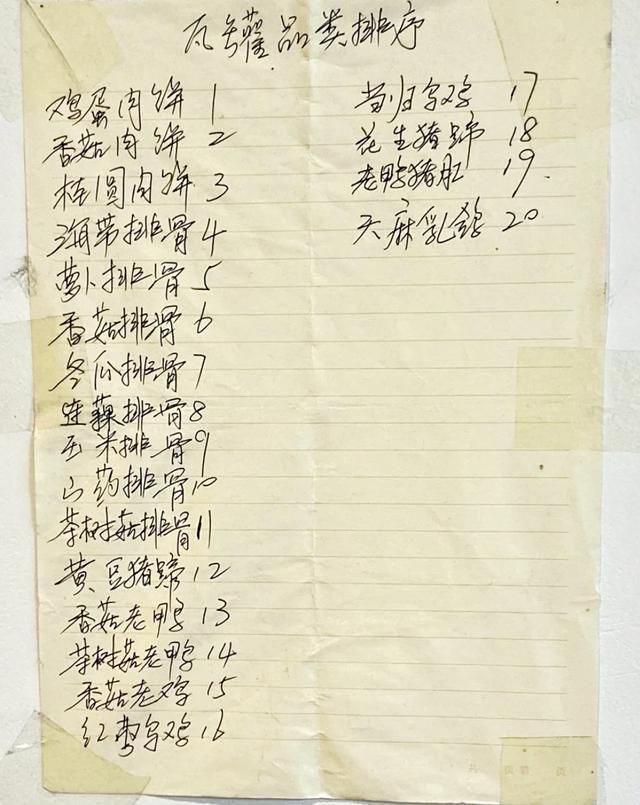 瓦缶罐品类排序
鸡蛋肉饼 1
香菇肉饼 2
桂圆肉饼 3
海带排骨 4
萝卜排骨 5
香菇排骨 6
冬瓜排骨 7
莲藕排骨 8
玉米排骨 9
山药排骨 10
茶树菇排骨 11
黄豆猪蹄 12
香菇老鸭 13
茶树菇老鸭 14
香菇老鸡 15
红枣乌鸡 16
当归乌鸡 17
花生猪蹄 18
老鸭猪肚 19
天麻乳鸽 20